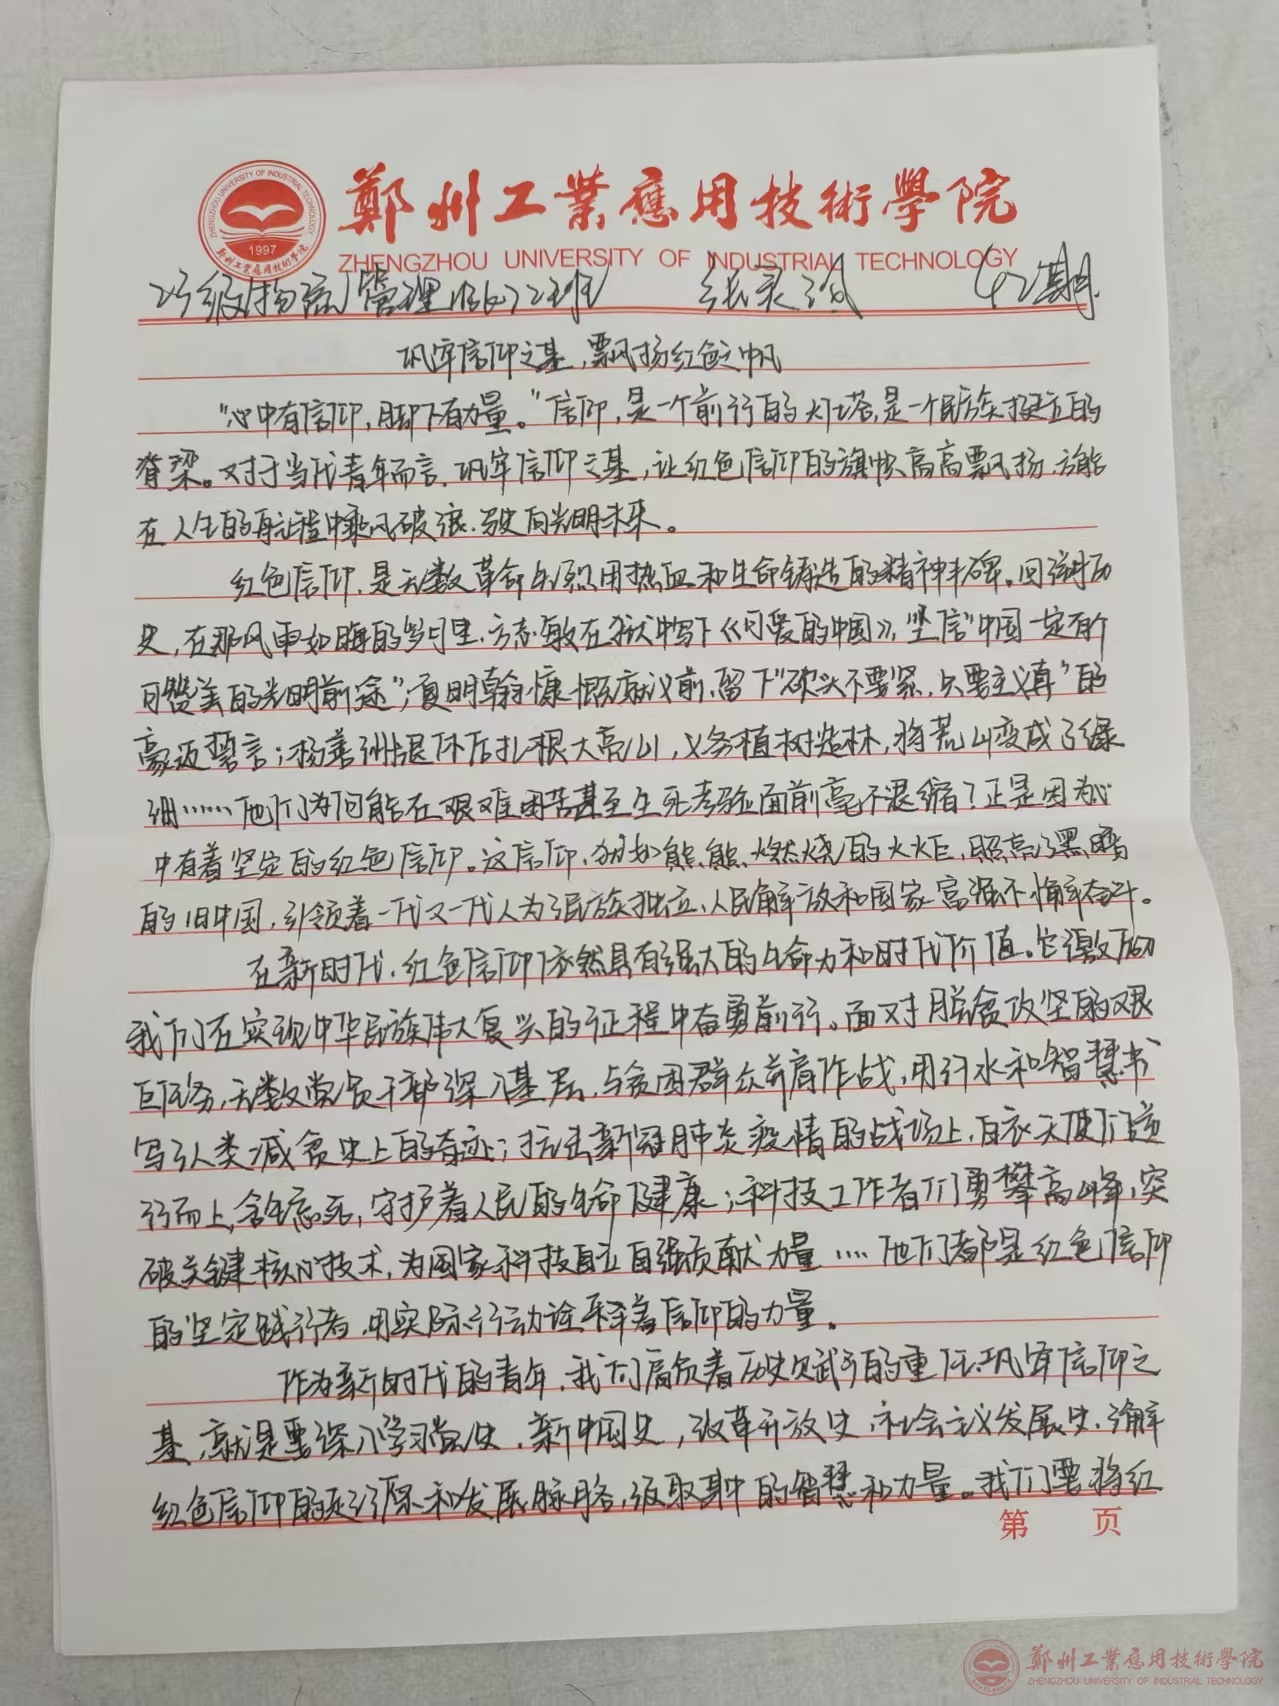 鄭州工業應用技術學院
ZHENGZHOU UNIVERSITY OF INDUSTRIAL TECHNOLOGY
ZHENGZHOU UNIVERSITY OF INDUSTRIAL TECHNOLOGY
1997
鄭州工業應用技術學院
23级物流管理 22班 张 42期
巩牢信仰之基，飘扬红色之帆
“心中有信仰，脚下有力量。”信仰，是一个前行的灯塔，是一个民族挺立的
脊梁。对于当代青年而言，巩牢信仰之基，让红色信仰的旗帜高高飘扬，方能
在人生的航程中乘风破浪，驶向光明未来。
红色信仰，是无数革命先烈用热血和生命铸造的精神丰碑。回溯历
史，在那风雨如晦的岁月里，方志敏在狱中写下《可爱的中国》，坚信“中国一定有个
可赞美的光明前途”；夏明翰慷慨就义前，留下“砍头不要紧，只要主义真”的
豪迈誓言；杨善洲退休后扎根大亮山，义务植树造林，将荒山变成了绿
洲……他们为何能在艰难困苦甚至生死考验面前毫不退缩？正是因为心
中有着坚定的红色信仰。这信仰，犹如熊熊燃烧的火炬，照亮了黑暗
的旧中国，引领着一代又一代人为民族独立、人民解放和国家富强不懈奋斗。
在新时代，红色信仰依然具有强大的生命力和时代价值。它激励
我们在实现中华民族伟大复兴的征程中奋勇前行。面对脱贫攻坚的艰
巨任务，无数党员干部深入基层，与贫困群众并肩作战，用汗水和智慧书
写了人类减贫史上的奇迹；抗击新冠肺炎疫情的战场上，白衣天使们逆
行而上，舍生忘死，守护着人民的生命健康；科技工作者们勇攀高峰，突
破关键核心技术，为国家科技自立自强贡献力量……他们都是红色信仰
的坚定践行者，用实际行动诠释着信仰的力量。
作为新时代的青年，我们肩负着历史赋予的重任。巩牢信仰之
基，就是要深入学习党史，新中国史，改革开放史，社会主义发展史，了解
红色信仰的起源和发展脉络，汲取其中的智慧和力量。我们要将红
第 页
鄭州工業應用技術學院
ZHENGZHOU UNIVERSITY OF INDUSTRIAL TECHNOLOGY